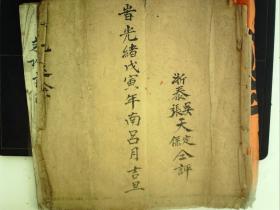 浙泰吳張天定保仝評
旹光緒戊寅年南呂月吉旦